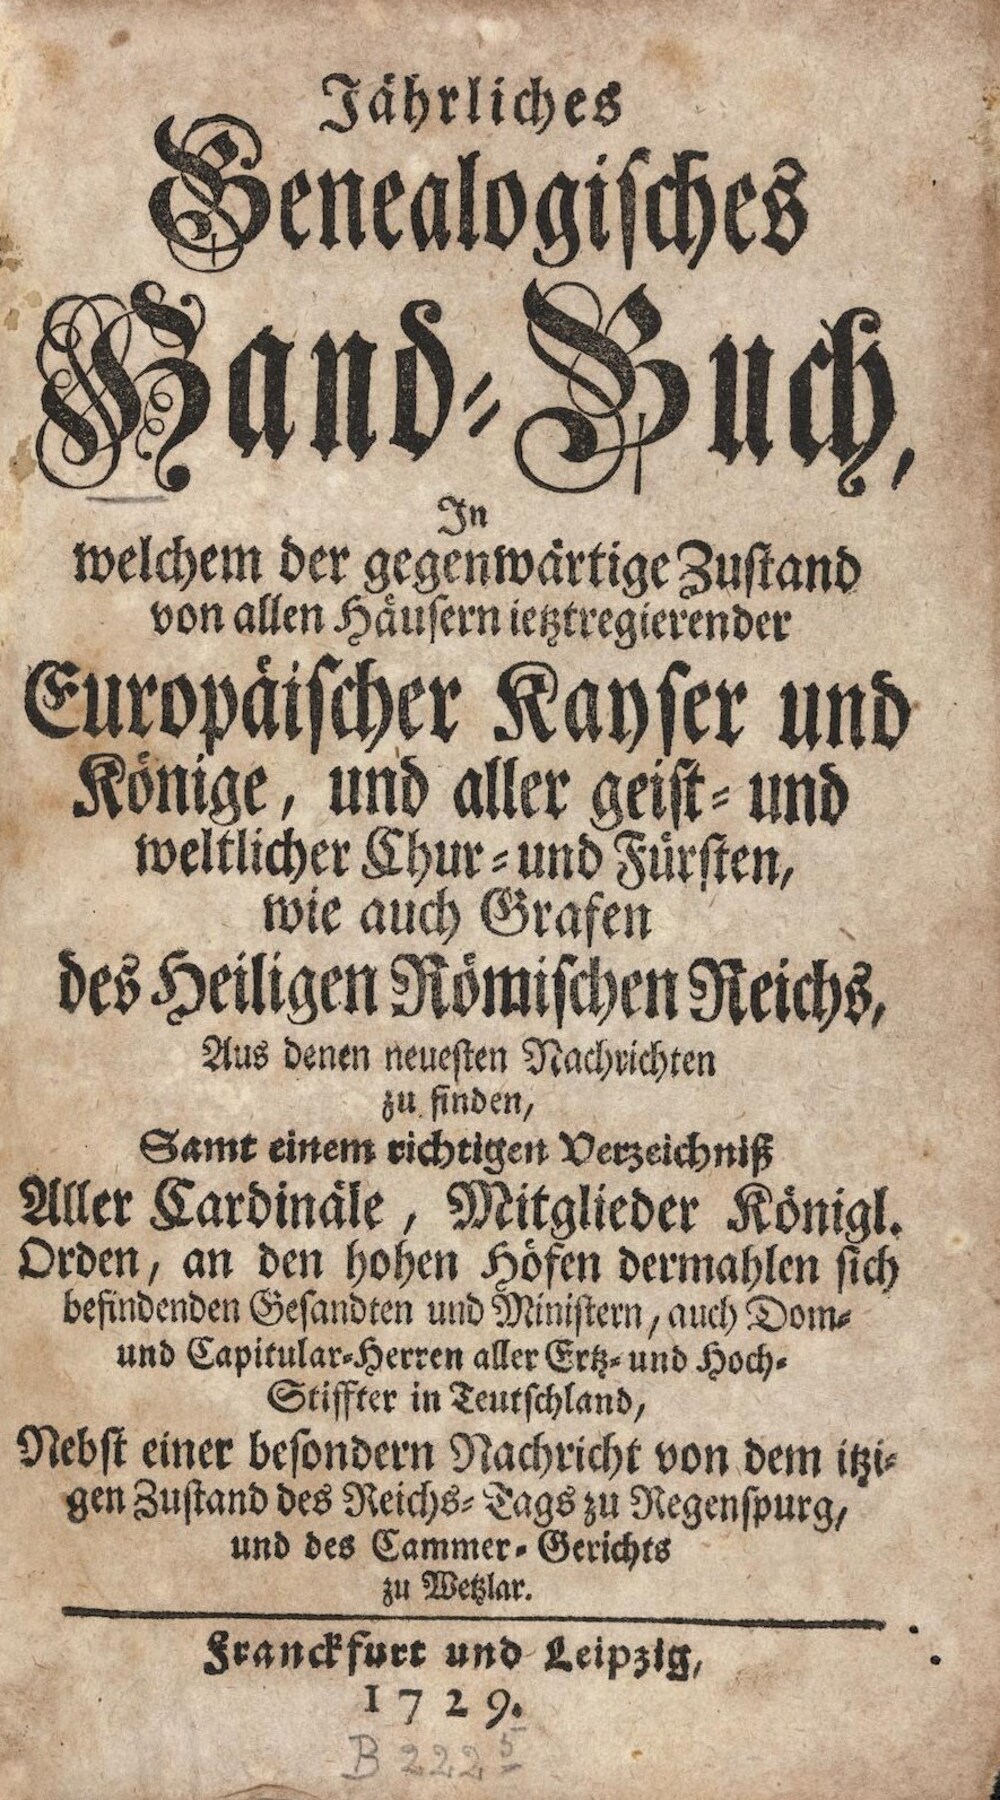 Jährliches
Genealogisches
Hand-Buch,
In
welchem der gegenwärtige Zustand
von allen Häusern ietztregierender
Europäischer Kayser und
Könige, und aller geist- und
weltlicher Chur- und Fürsten,
wie auch Grafen
des Heiligen Römischen Reichs,
Aus denen neuesten Nachrichten
zu finden,
Samt einem richtigen Verzeichniß
Aller Cardinäle, Mitglieder Königl.
Orden, an den hohen Höfen dermahlen sich
befindenden Gesandten und Ministern, auch Dom-
und Capitular-Herren aller Ertz- und Hoch-
Stiffter in Teutschland,
Nebst einer besondern Nachricht von dem itzi-
gen Zustand des Reichs-Tags zu Regenspurg,
und des Cammer-Gerichts
zu Wetzlar.
Franckfurt und Leipzig,
1729.
B 222 5